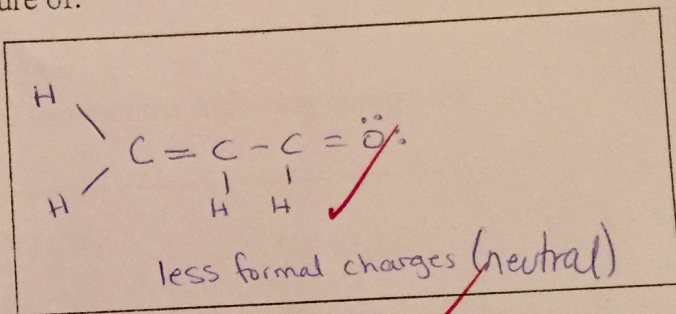 ure of:
H
C = C - C = Ö:
H H H
less formal charges (neutral)